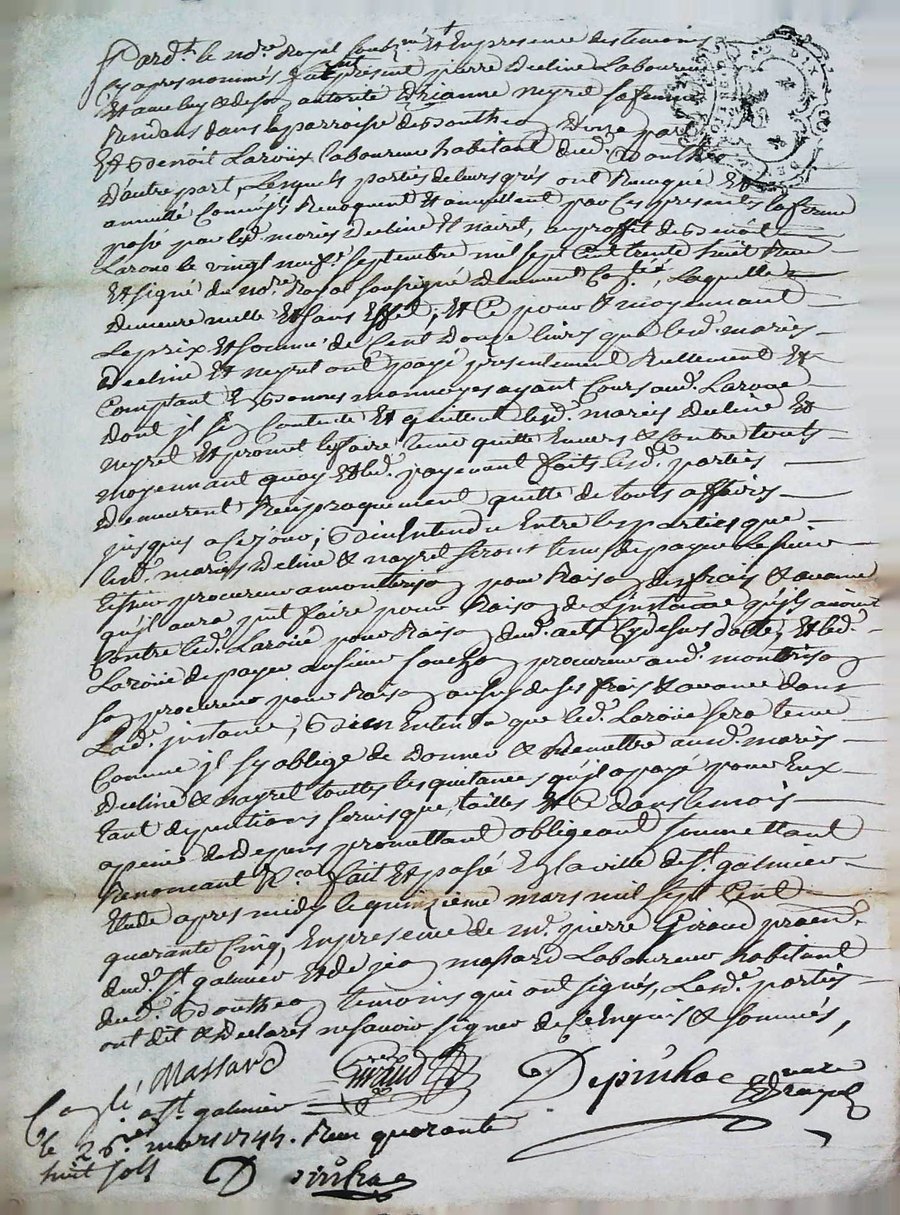 Pard.t le no.re Royal soubz.né Et En presence des temoins
Cy apres nommés fut present pierre Decline Laboureur
Et avec luy & de son autorité anne neyrel sa femme
Rendans dans la parroisse de Bontheon D'une part
Et Benoit Laroüe laboureur habitant dud. Bontheon
D'autre part, Lesquels parties de leurs grés ont Revoqué Et
annullé comm'ils Revoquent & annullent par Ces presentes la ferme
passé par les d. mariés Decline & nairel, au proffit de Benoit
Laroue le vingt neuf.e septembre mil sept Cent trente huit Reçu
Et signé du no.re Royal soussigné Deument Con.lé, Laquelle
Demeure nulle Et sans Effet, Et Ce pour & moyennant
Le prix Et somme de Cent Douze livres que les d. mariés
Decline Et neyrel ont payé presentement Reellement Et
Comptant En Bonnes monnoyes ayant Cours aud. Laroue
Dont jl se Contente Et quitte les d. mariés Decline Et
neyrel Et promet les faire tenir quitte Envers & Contre touts
moyennant quoy Et led. payement faits les d. parties
Demeurent Reciproquement quitte de touts affaires
jusques a Ce jour, Bien Entendu Entre les parties que
les d. mariés Decline & nayrel seront tenus de payer Le sieur
procureur a montbrison pour Raison des frais & avance
qu'jl aura peut faire pour Raison de L'jnstance qu'jls avoient
Contre led. Laroüe pour Raison dud. acte Cy dessus datté, Et led.
Laroüe de payer au sieur procureur aud. montbrison
son procureur pour Raison aussy de ses frais & avance dans
Lad. jnstance, Bien Entendu que led. Laroüe sera tenu
Comme jl s'y oblige de Donner & Remettre aud. mariés
Decline & Nayrel touttes les quitances qu'jl a payé pour Eux
tant de pentions servis que tailles Et Ce dans le mois
a peine de Depens promettant obligeant soumettant
Renoncant &.ca fait Et passé En la ville de s.t galmier
Etude apres midy le quinzième mars mil sept Cent
quarante Cinq, En presence de m.e pierre Giraud praen.
dud. s.t galmier Et de jean Massard Laboureur habitant
dud. Bontheon temoins qui ont signés, Les d. parties
ont dit & Declarés ne scavoir signer de Ce Enquis & sommés,
Massard Giraud Depinhac no.re Royal
Con.lé a s.t galmier
le 26 mars 1745. Reçu quarante
huit sols Depinhac